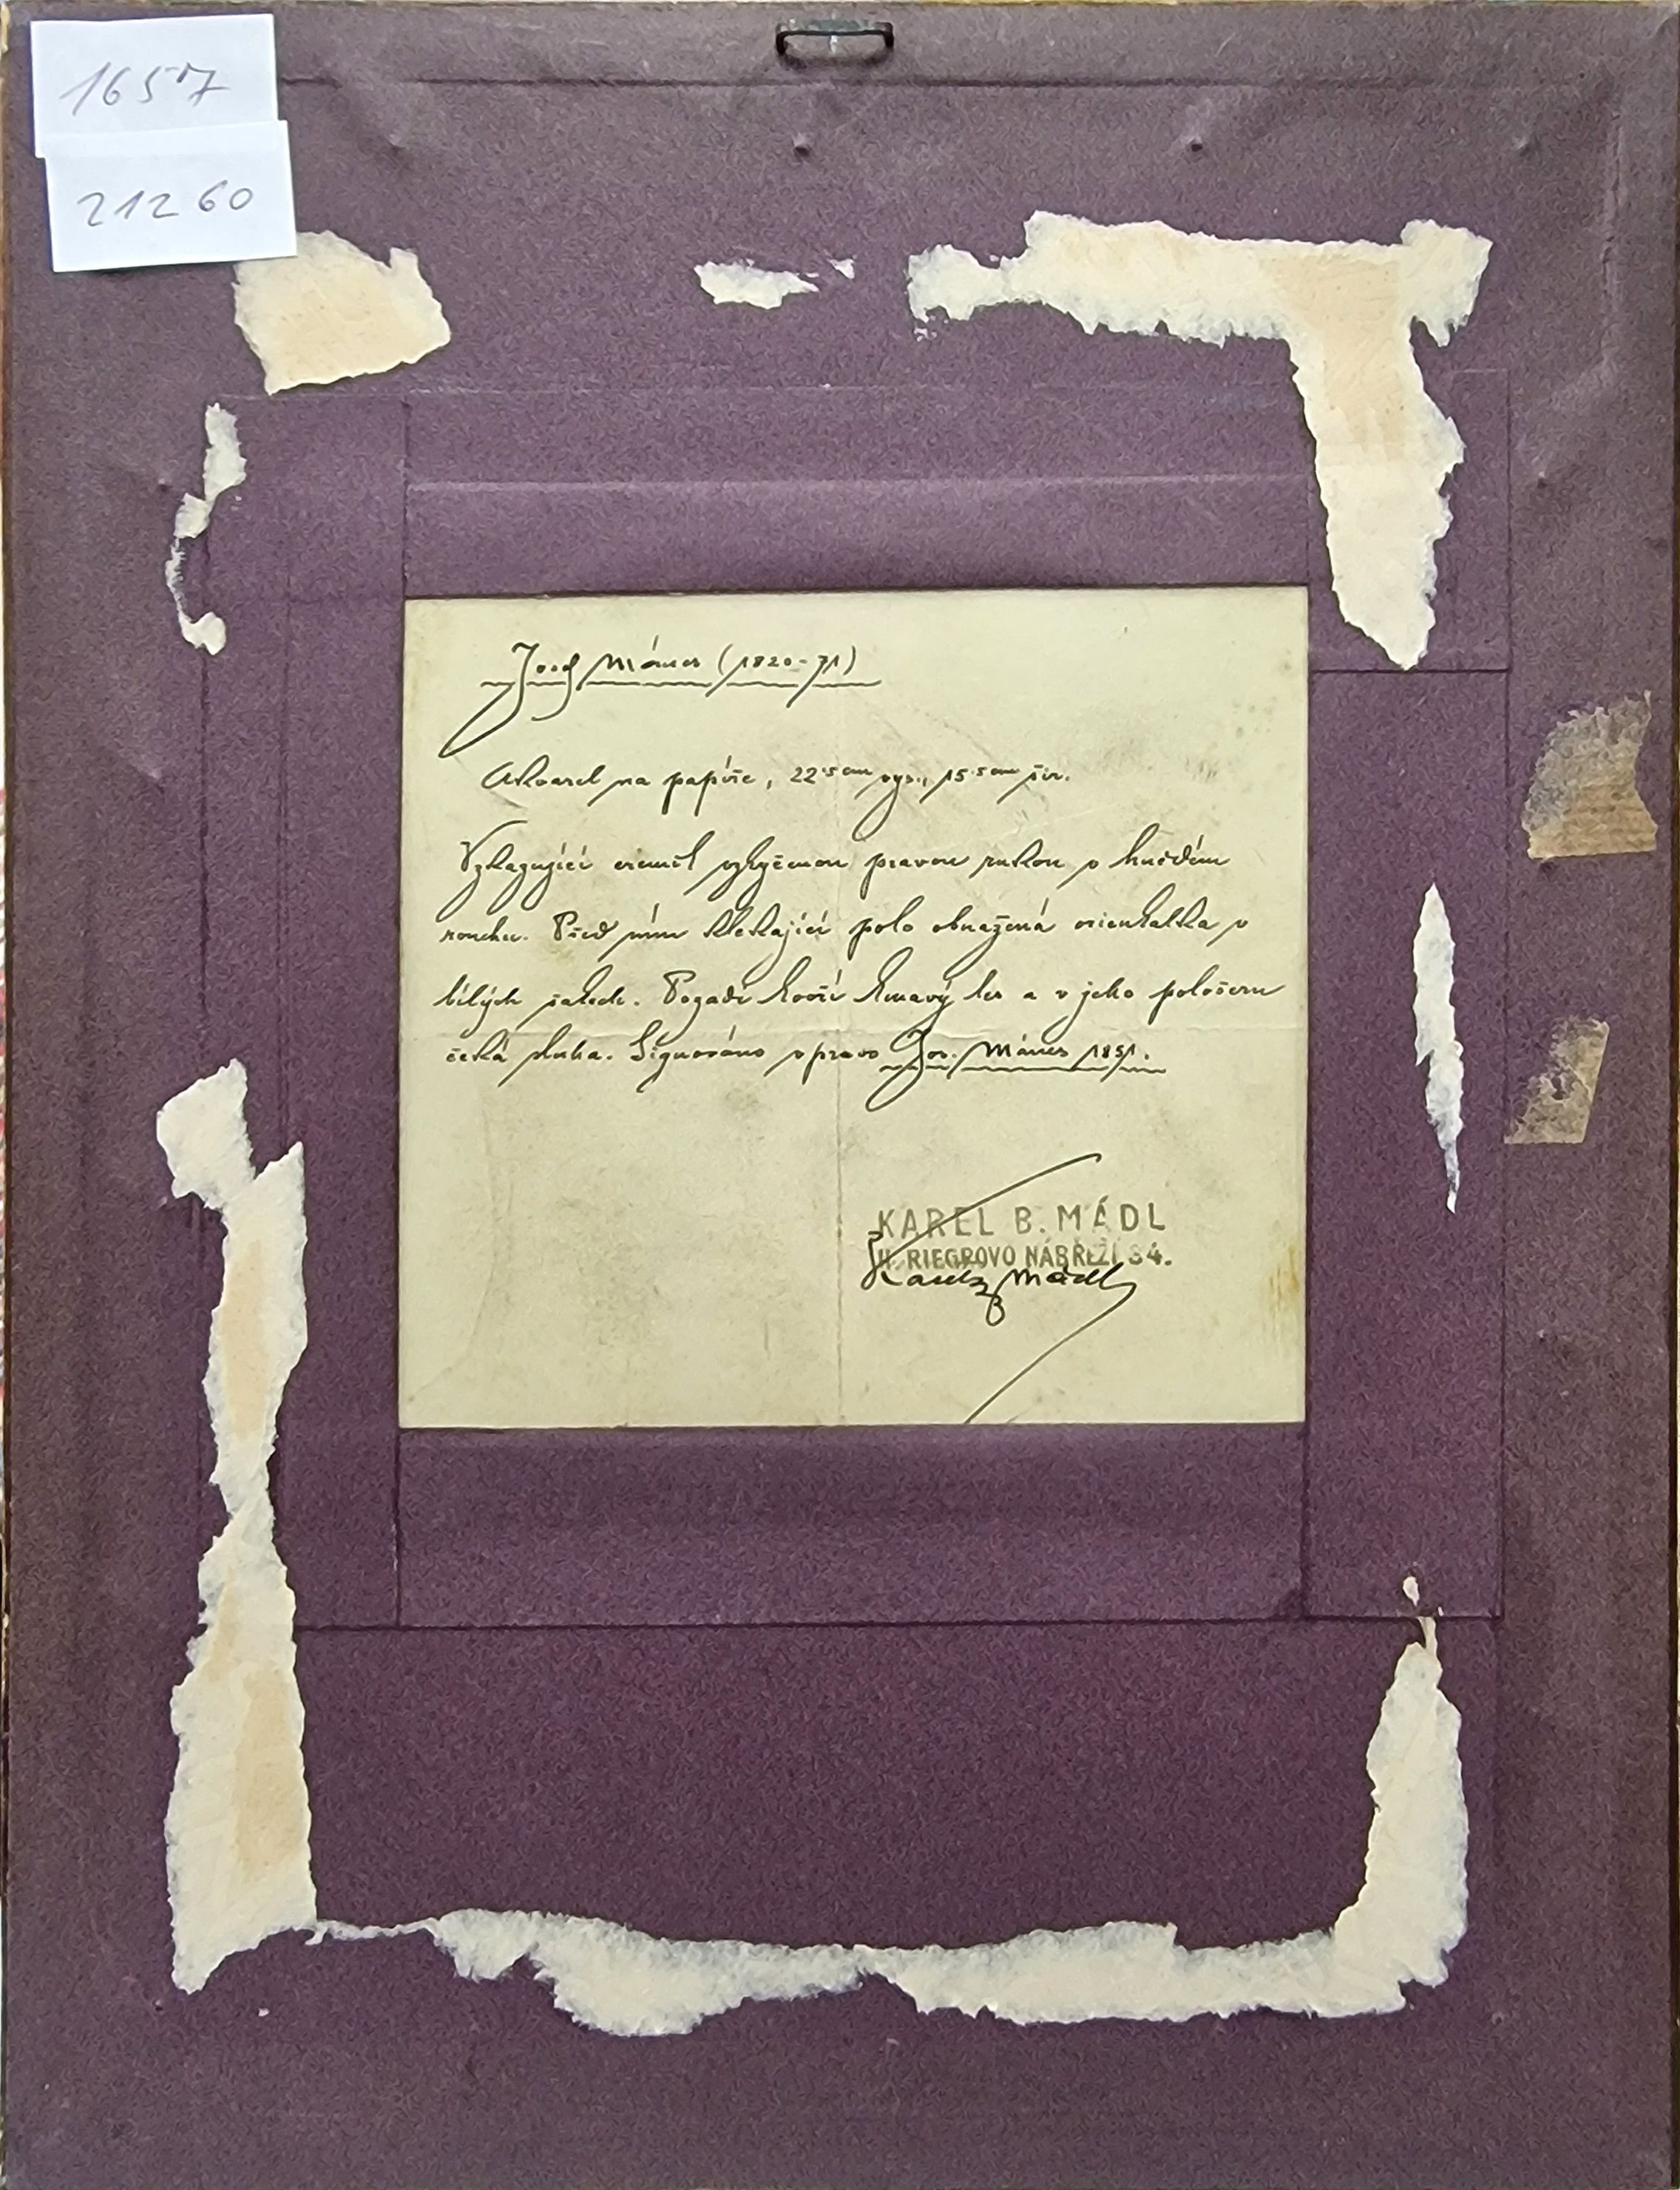 1657
21260
Josef Mánes (1820-71)
Akvarel na papíře, 22·5 cm vys., 15·5 cm šir.
Vzkazující eremit vztyčenou pravou rukou v hnědém
rouchu. Před ním klekající polo obnažená orientalka v
bílých šatech. Pozadí tvoří tmavý les a v jeho pološeru
čeká sluha. Signováno vpravo Jos. Mánes 1851.
KAREL B. MÁDL
II. RIEGROVO NÁBŘEŽÍ 34.
Karel B Mádl